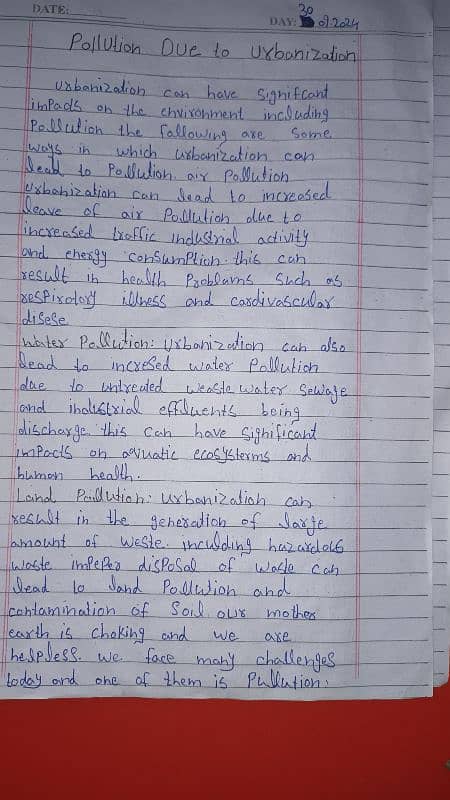 DATE:
DAY: 30 09.2024
Pollution Due to urbanization
urbanization can have significant
impacts on the environment including
Pollution the following are some
ways in which urbanization can
lead to Pollution. air Pollution
urbanization can lead to increased
leave of air Pollution due to
increased traffic industrial activity
and energy consumption. this can
result in health Problams such as
respiratory illness and cardivascular
disese
Water Pollution: urbanization can also
lead to incresed water Pollution
due to untreated weaste water sewage
and industrial effluents being
discharge. this can have significant
impacts on aquatic ecosysterms and
human health.
Land Paullution: urbanization can
result in the generation of large
amount of weste. inculding hazardous
waste impeper disposal of waste can
lead to land Pollution and
contamination of soil. our mother
earth is choking and we are
helpless. we face many challenges
today and one of them is Pullution.